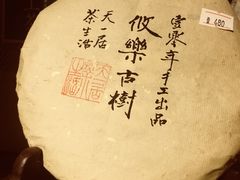 壹零年手工出品
攸樂古樹
天一居
茶生活
480